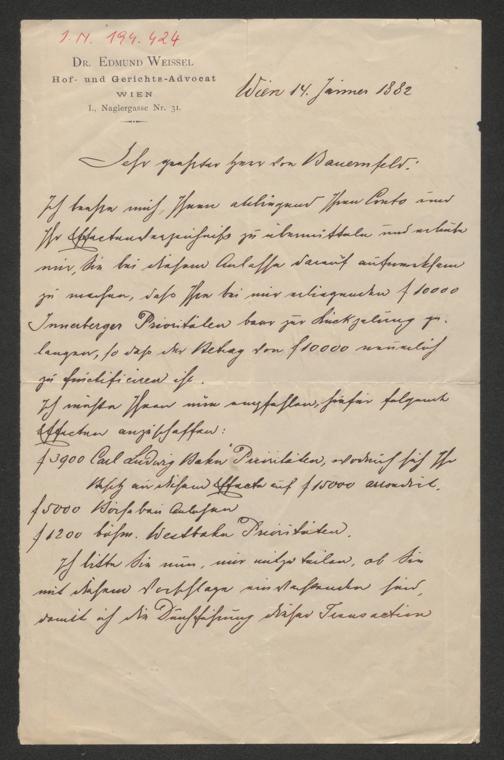 I.N. 194.424
Dr. Edmund Weissel
Hof- und Gerichts-Advocat
WIEN
I., Naglergasse Nr. 31.
Wien 14. Jänner 1882
Sehr geehrter Herr von Bauernfeld!
Ich beehre mich, Ihnen anliegend Ihren Conto und
Ihr Effectenverzeichniß zu übermitteln und erlaube
mir, Sie bei diesem Anlasse darauf aufmerksam
zu machen, daß Ihre bei mir erliegenden f 10000
Innerberger Prioritäten baar zur Rückzalung ge-
langen, so daß der Betrag von f 10000 neuerlich
zu fructificiren ist.
Ich möchte Ihnen nun empfehlen, hiefür folgende
Effecten anzuschaffen:
f 3900 Carl Ludwig Bahn Prioritäten, wodurch sich Ihr
Besitz an diesem Effecte auf f 15000 arrondirt.
f 5000 Börsebau Anlehen
f 1200 böhm. Westbahn Prioritäten.
Ich bitte Sie nun, mir mitzuteilen, ob Sie
mit diesem Vorschlage einverstanden sind,
damit ich die Durchführung dieser Transaction